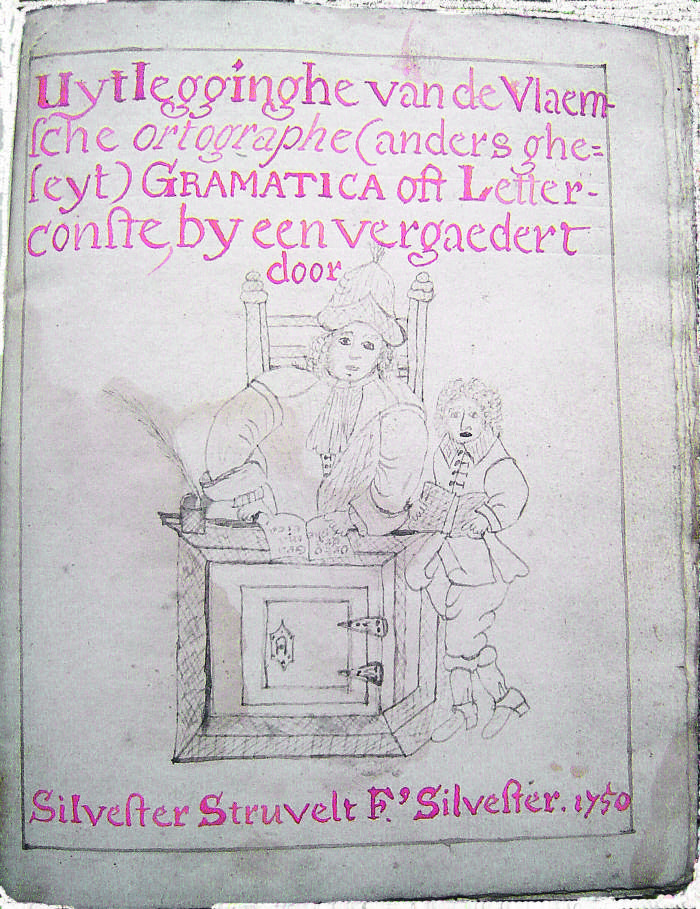 Uytlegginghe van de Vlaem-
sche ortographe (anders ghe=
seyt) GRAMATICA oft Letter-
conste, by een vergaedert
door
Silvester Struvelt Fs Silvester. 1750